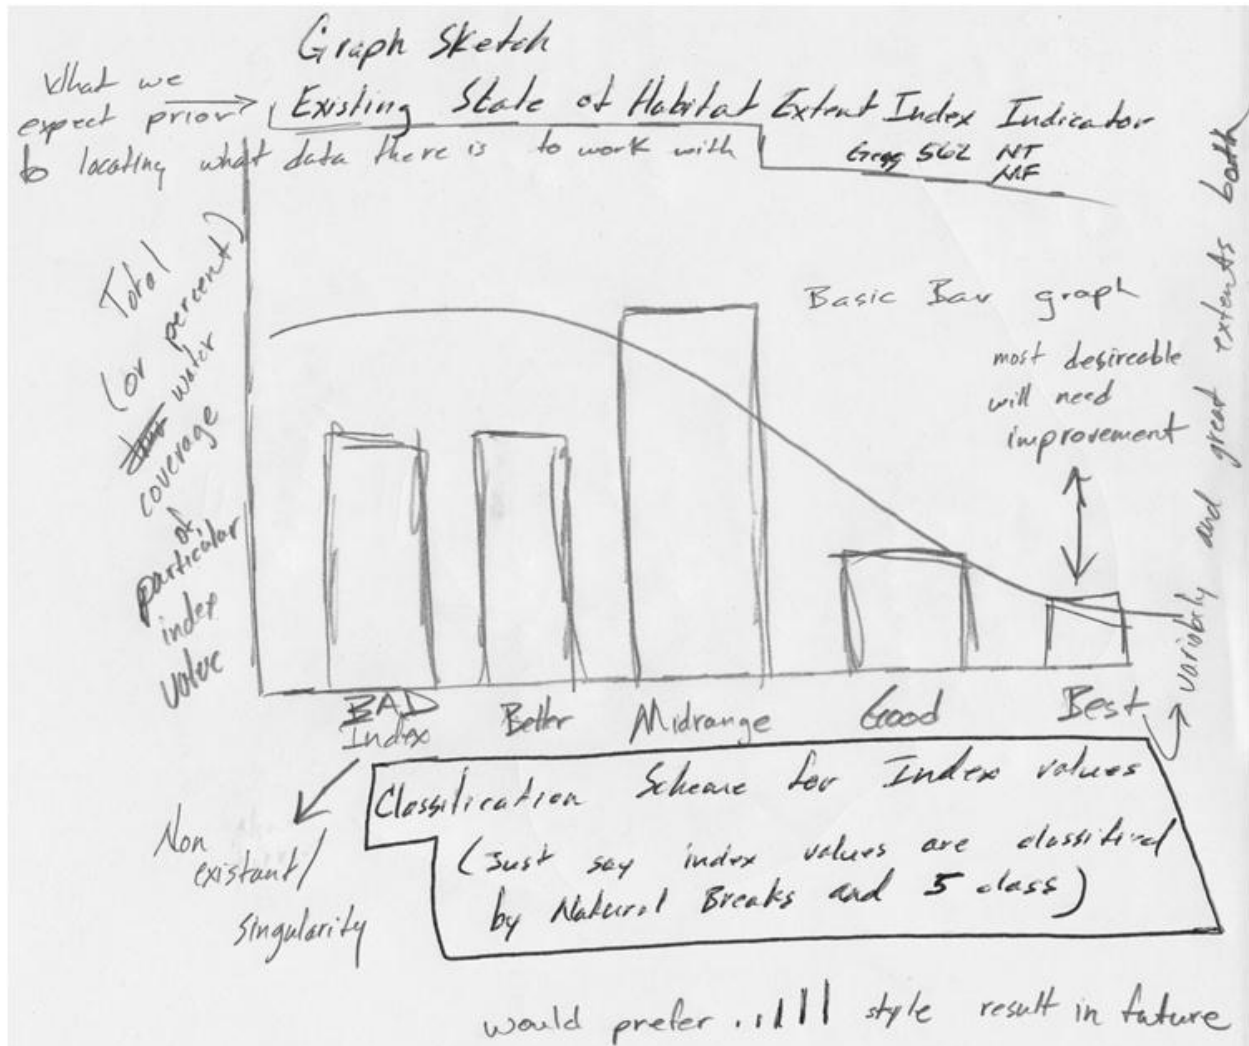 Graph Sketch
What we
expect prior
to locating what data there is to work with
Existing State of Habitat Extent Index Indicator
562 NT
MF
Total
(or percent)
water
coverage
of
particular
index
value
Basic Bar graph
most desireable
will need
improvement
BAD
Index
Better
Midrange
Good
Best
and great extents both
Non
existant/
singularity
Classification Scheme for Index values
(Just say index values are classified
by Natural Breaks and 5 class)
would prefer style result in future